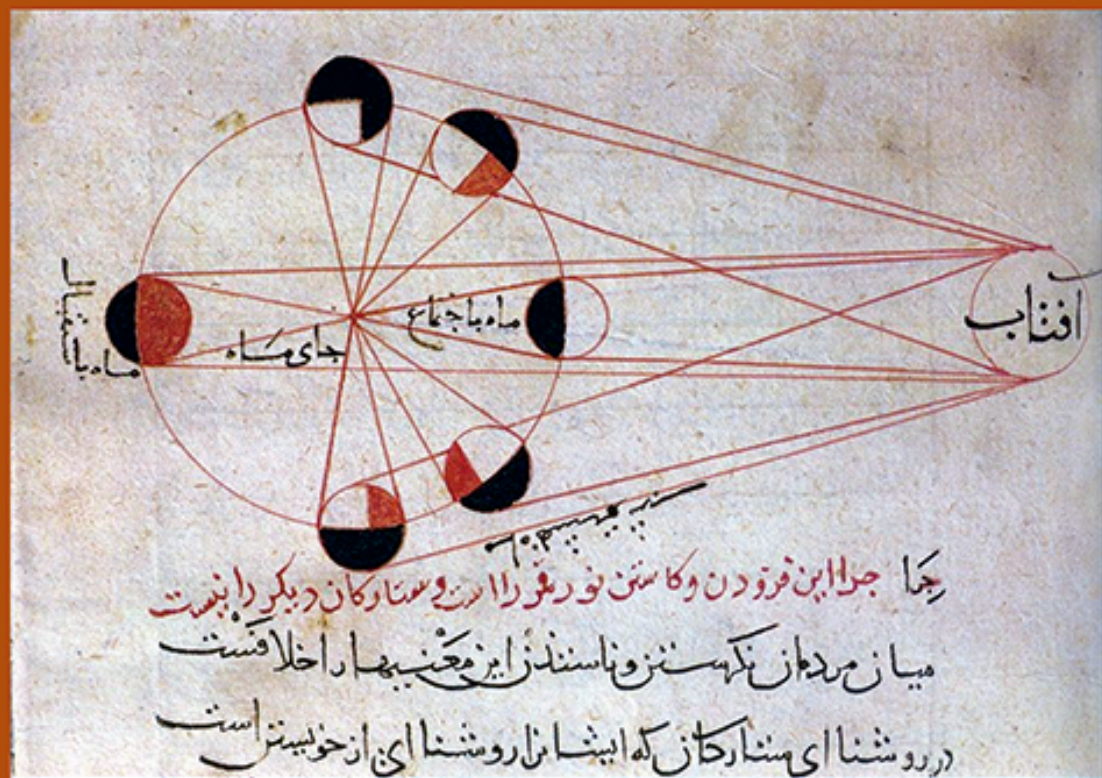 افتاب
ماه باجتماع
جای ماه
ماه باستقبال
چرا چرا این فزودن و کاستن نور قمر را است و ستارکان دیکر را نیست
میان مردمان نکرستن این معنیها را خلافست
در روشنای ستارکان که ایشانرا روشنای از خویشتن است